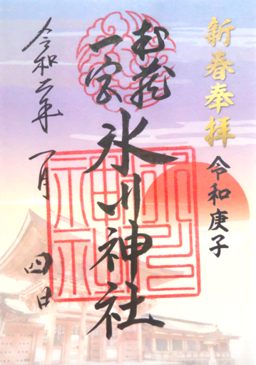 新春奉拝
令和庚子
武蔵
一宮
氷川神社
令和二年
一月
四日